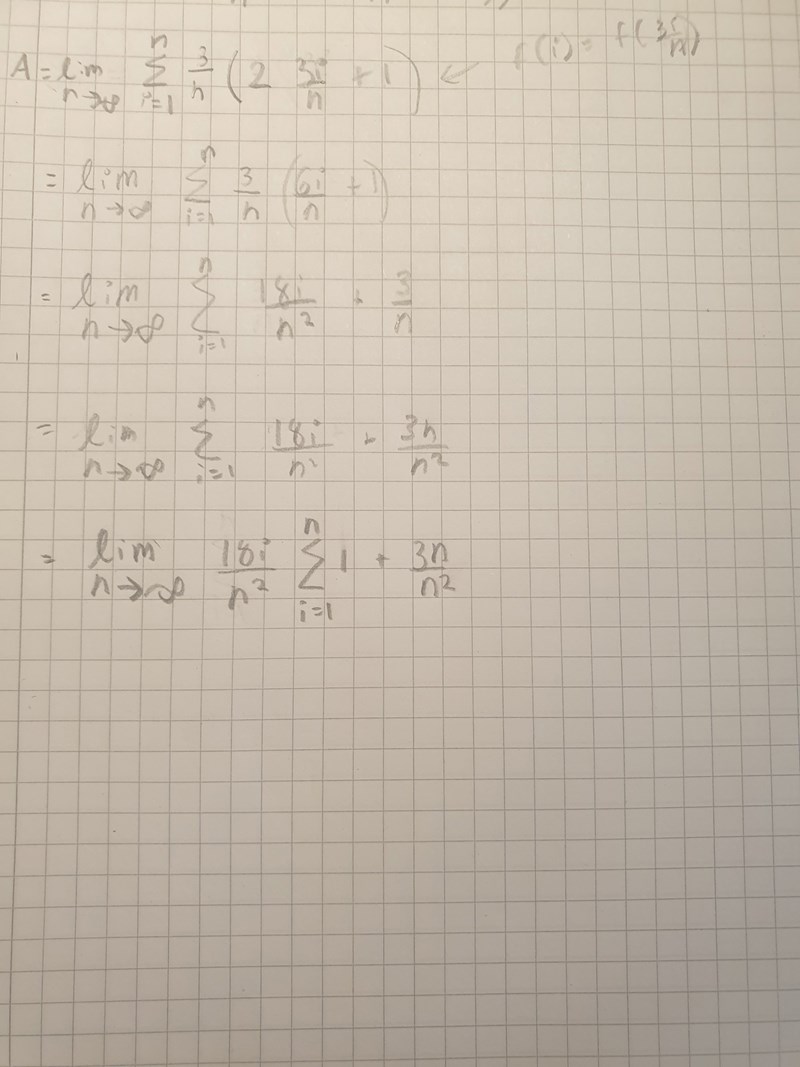 A = lim n→∞ n Σ i=1 3/n (2 3i/n + 1) ← f(i) = f(3i/n)
= lim n→∞ n Σ i=1 3/n (6i/n + 1)
= lim n→∞ n Σ i=1 18i/n² + 3/n
= lim n→∞ n Σ i=1 18i/n² + 3n/n²
= lim n→∞ 18i/n² n Σ i=1 1 + 3n/n²